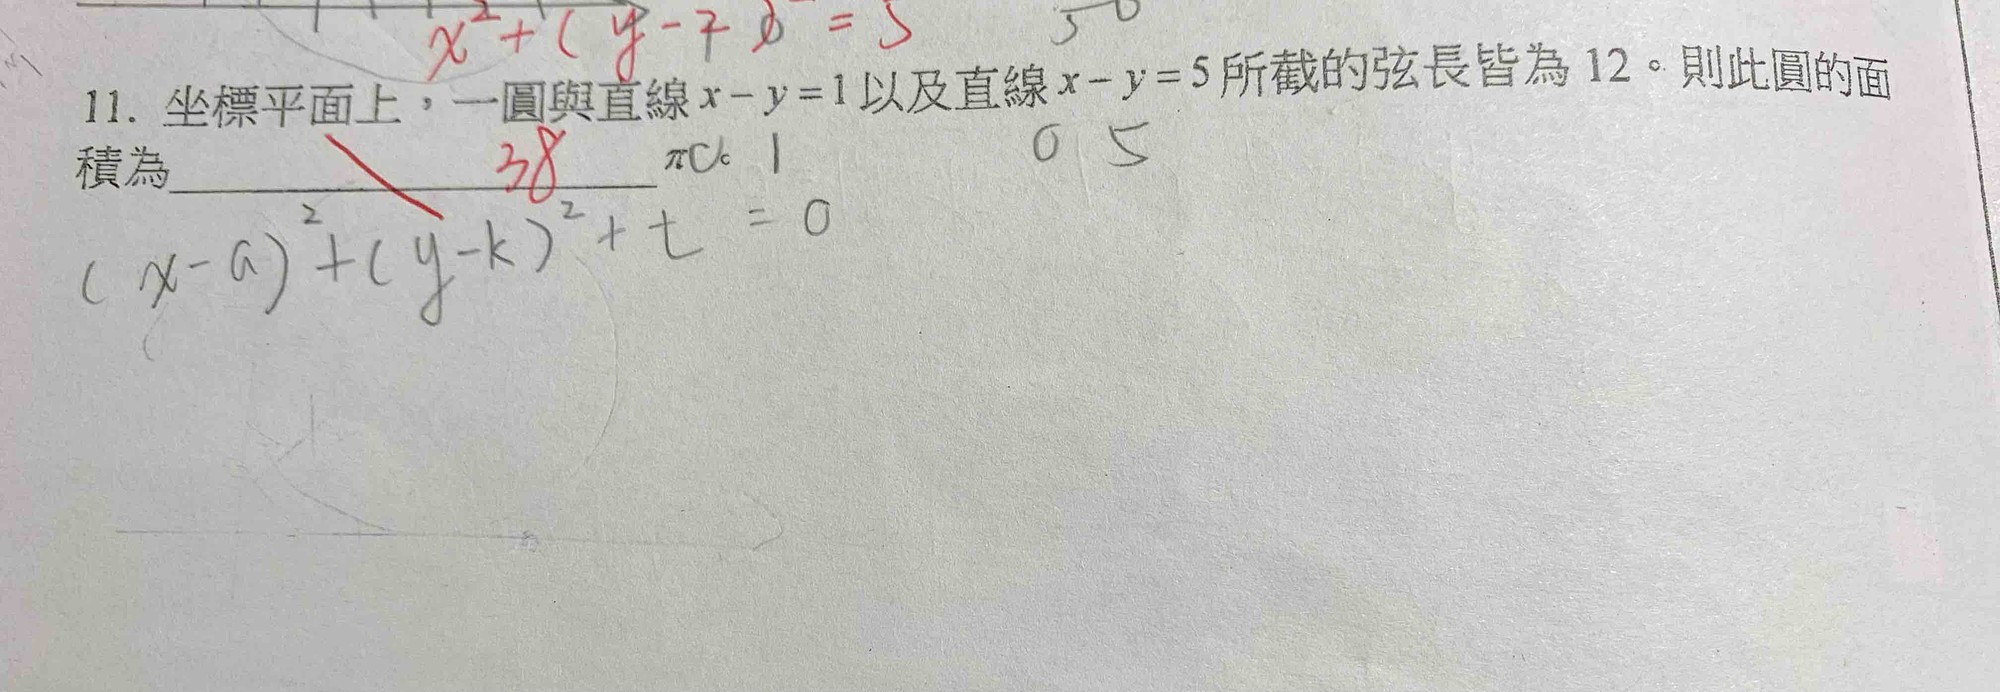 x²+(y-7)² = 5
11. 坐標平面上，一圓與直線 x－y=1 以及直線 x－y=5 所截的弦長皆為 12。則此圓的面
積為 38 π。 1 0 5
(x-a)²+(y-k)²+t = 0